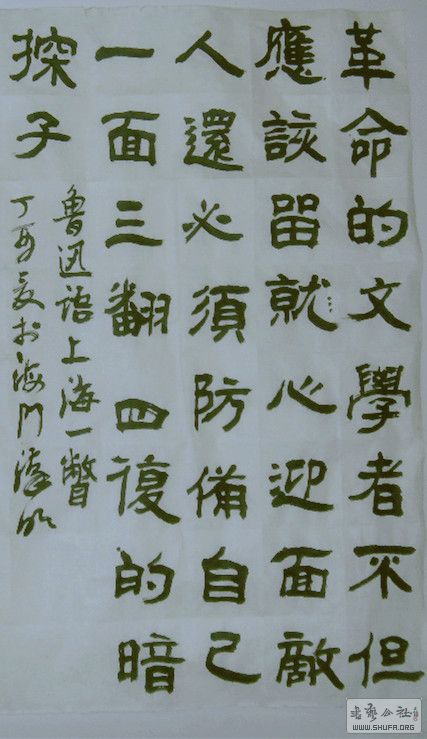 革命的文學者不但
應該留就心迎面敵
人還必須防備自己
一面三翻四復的暗
探子
魯迅語上海一瞥
丁亥夏於海門
书艺公社
WWW.SHUFA.ORG